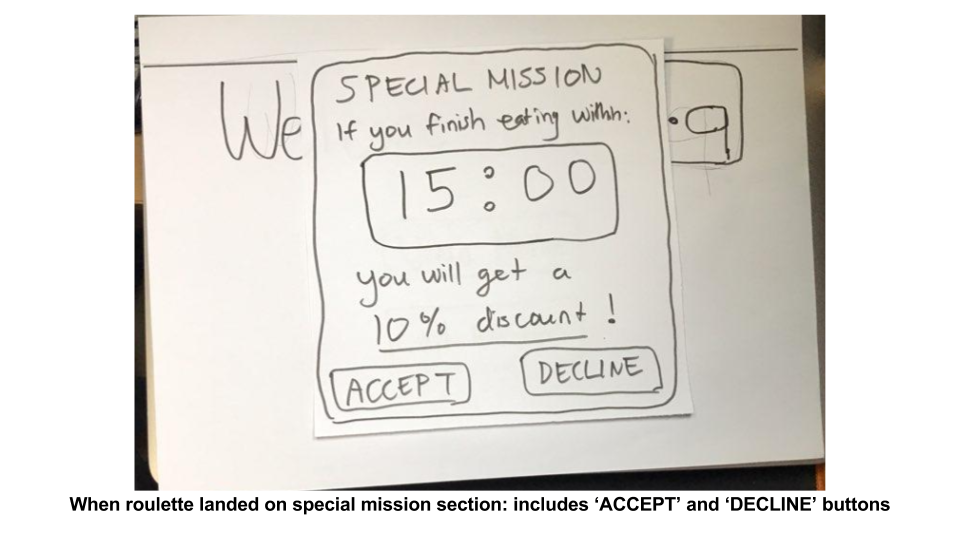 We
SPECIAL MISSION
If you finish eating within:
15:00
you will get a
10% discount!
ACCEPT
DECLINE
When roulette landed on special mission section: includes ‘ACCEPT’ and ‘DECLINE’ buttons